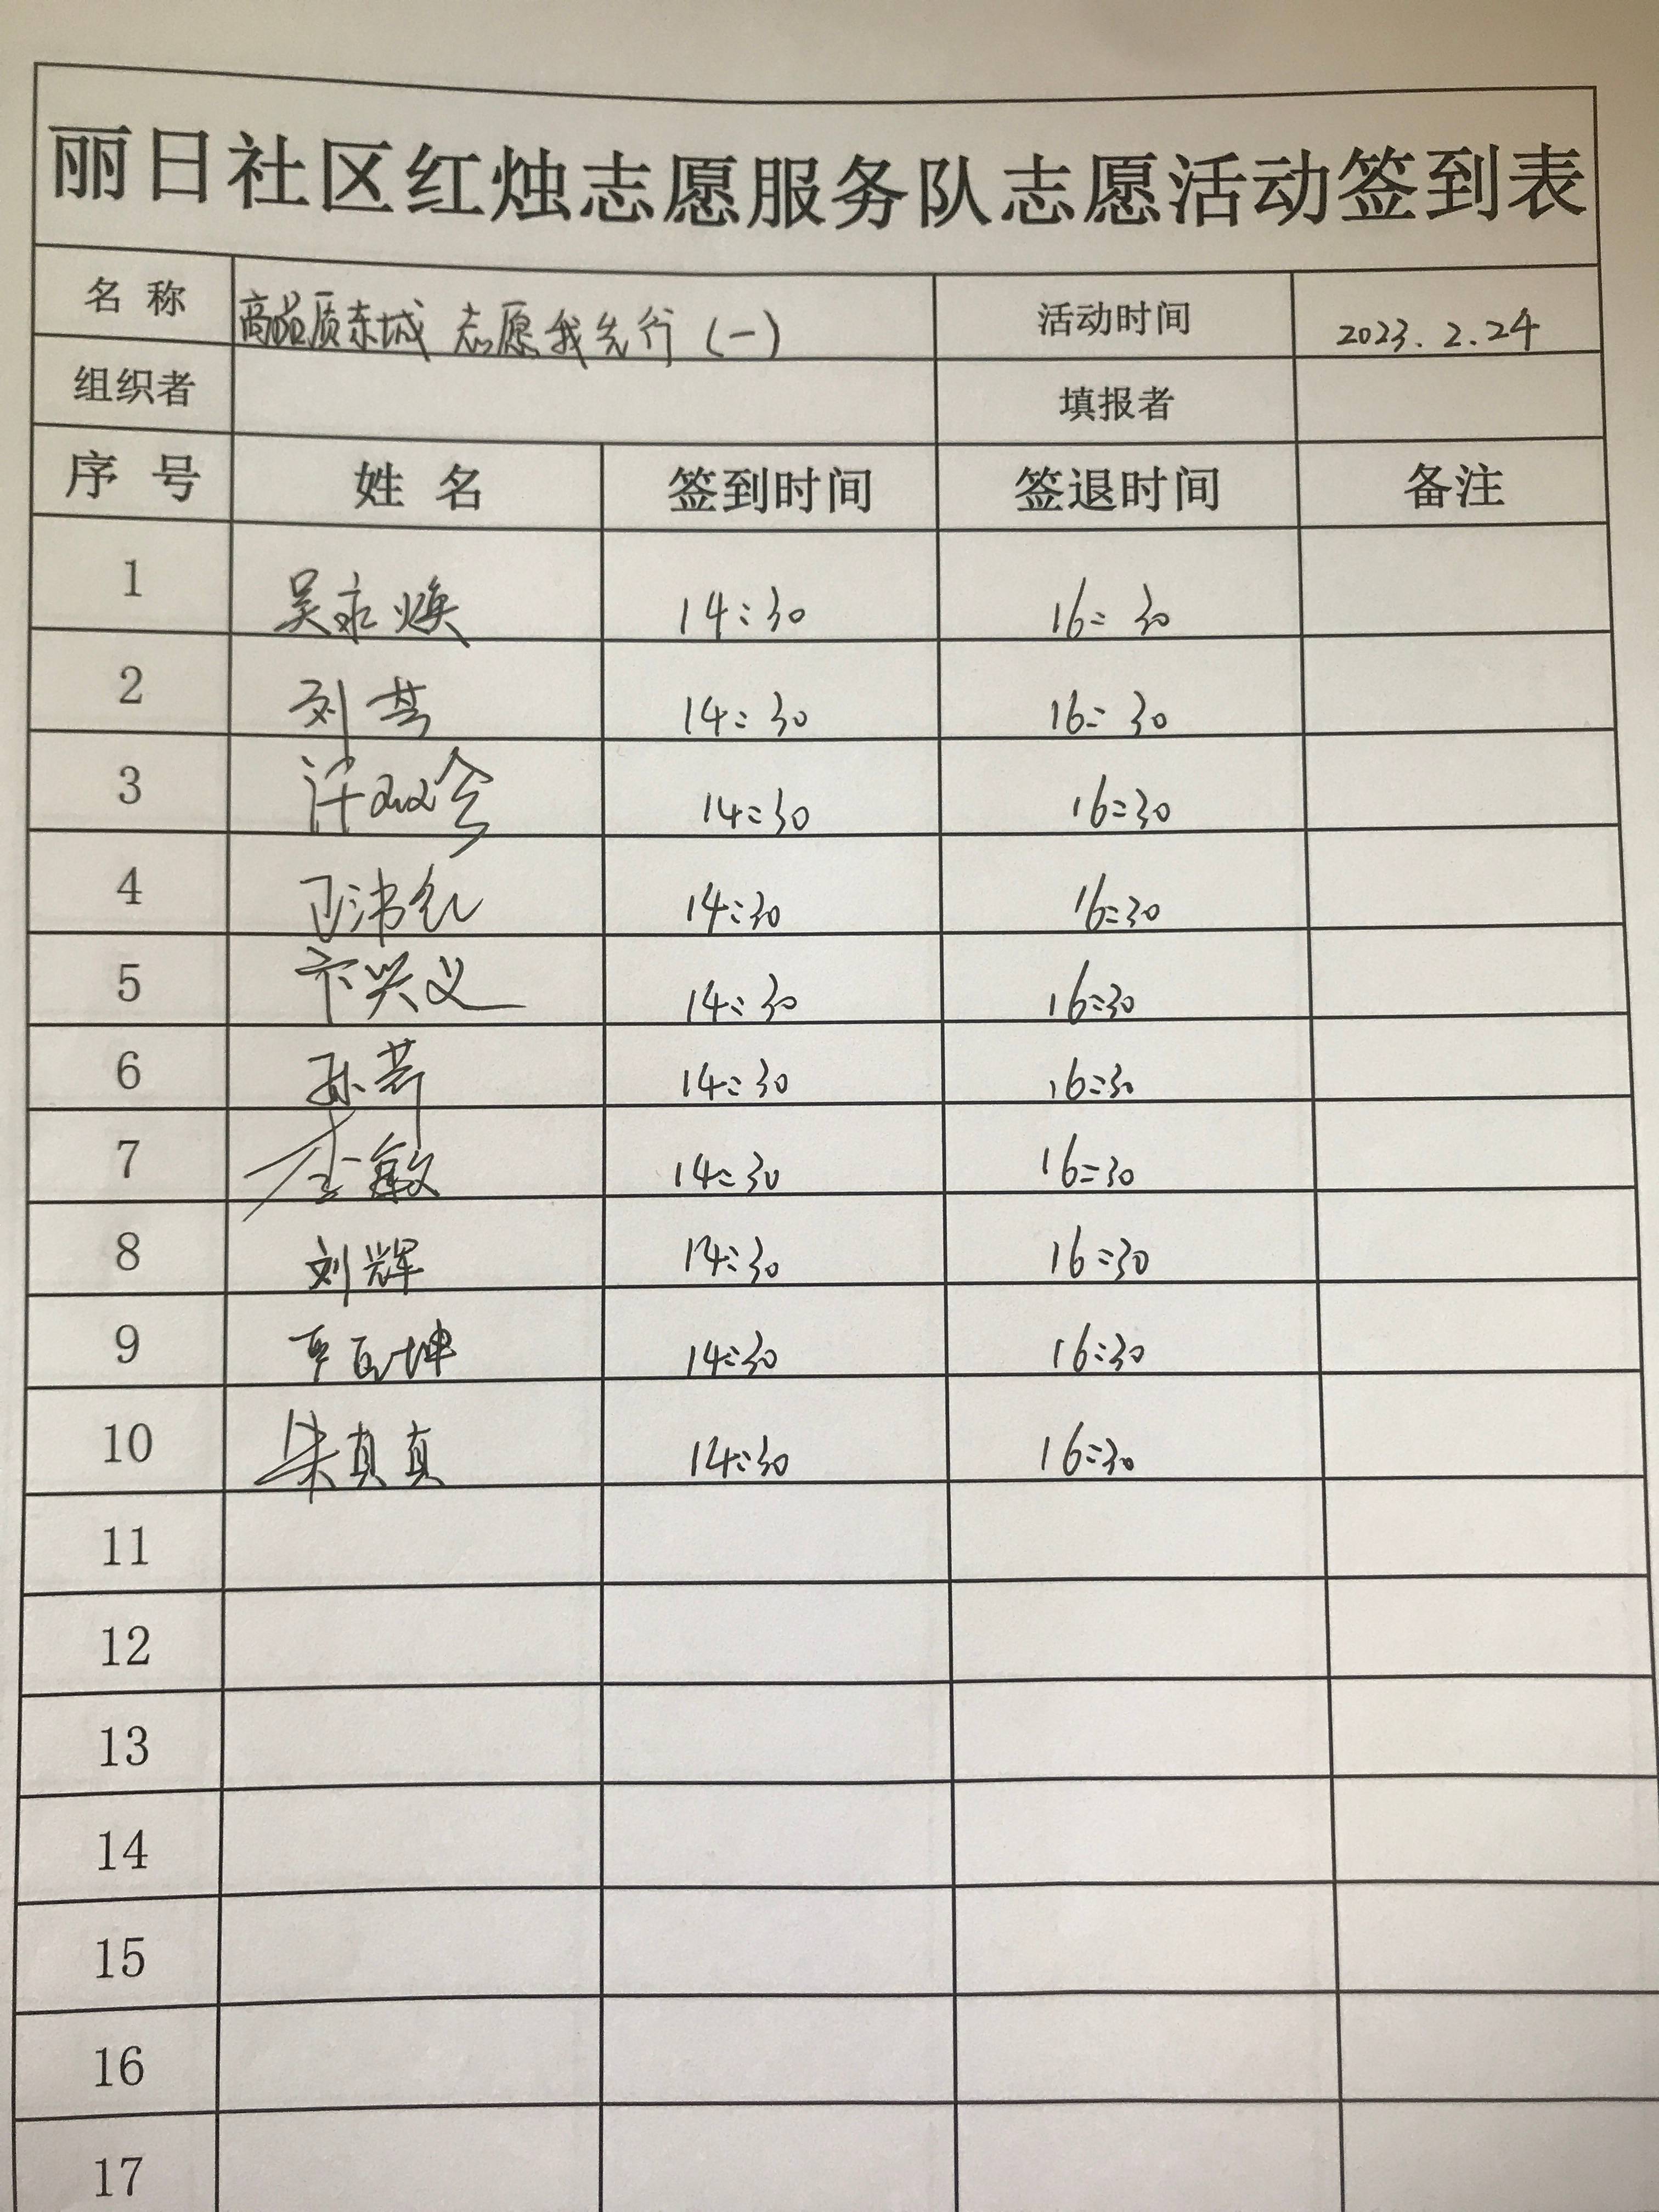 丽日社区红烛志愿服务队志愿活动签到表
名 称 高品质东城 志愿我先行 (一) 活动时间 2023.2.24
组织者 填报者
序 号 姓 名 签到时间 签退时间 备注
1 吴永焕 14:30 16:30
2 刘芸 14:30 16:30
3 14:30 16:30
4 14:30 16:30
5 卞兴义 14:30 16:30
6 孙芹 14:30 16:30
7 李敏 14:30 16:30
8 刘辉 14:30 16:30
9 14:30 16:30
10 朱真真 14:30 16:30
11
12
13
14
15
16
17